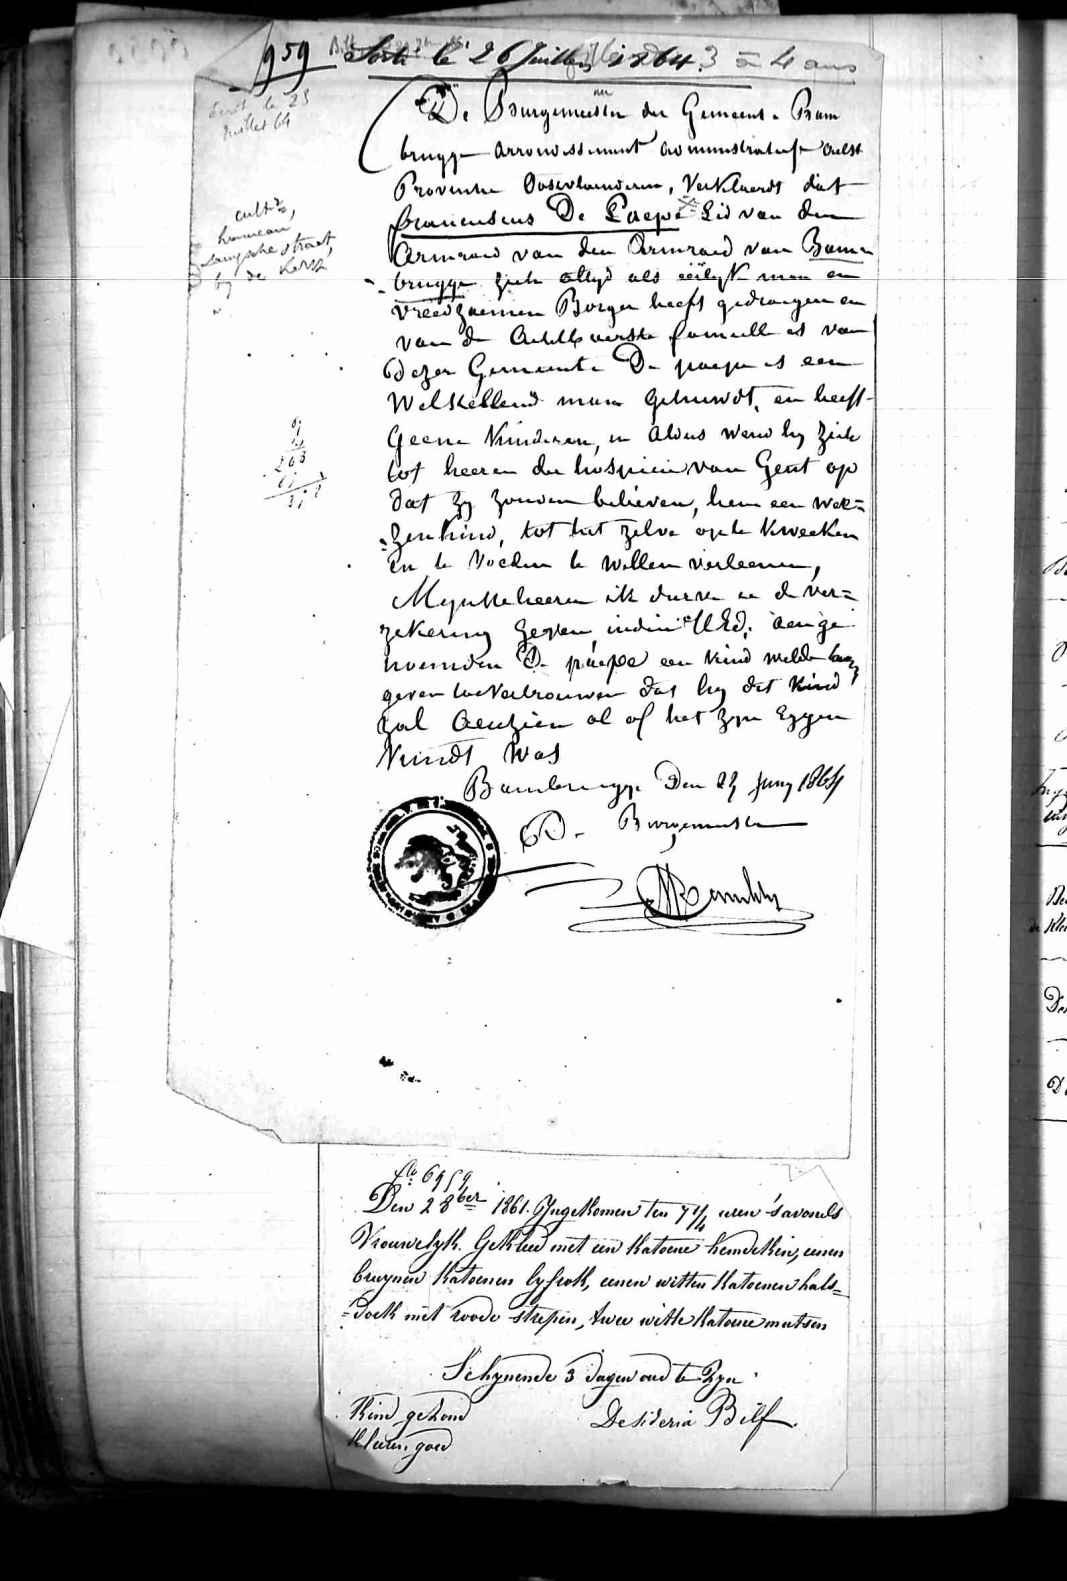 959 Sorti le 26 Juillet 1864. 3 à 4 ans
Ecrit le 25
Juillet 64
cultr,
hameau
Langshe straet,
by de Kerk
De Burgemeester der Gemeente Bam
brugge arrondissement administratief Aelst
Provintie Oostvlaenderen, Verklaerdt dat
franciscus De Paepe Lid van den
Armraed van den Armraed van Bam=
brugge zich altyd als eerlyk man en
vreedzaemen Borger heeft gedraegen en
van de Achtbaerste familles van
dezer Gemeente De paepe is een
Welstellend man getrouwdt, en heeft
Geene Kinderen, en aldus wend hy zich
tot heeren der hospicien van Gent op
dat zy zouden believen, hem een wee=
zenkind, tot het zelve op te kweeken
en te voeden te willen verleenen,
Mynheheeren ik durve ue de ver=
zekering geven indien UEd. aenge
noemden De paepe een kind wilde
geven toevertrouwen dat hy dit kind
zal Aenzien al of het zyn Eygen
Kindt was
Bambrugge Den 29 Juny 1864
De Burgemeester
No 6959
Den 2 8ber 1861. Ingekomen ten 7 1/4 uren s'avonds
Vrouwelyk. Gekleed met een Katoene hemdeken, eenen
bruynen Katoenen lyfrok, eenen witten Katoenen hals=
=doek met roode strepen, twee witte Katoene mutsen
Schynende 3 dagen oud te Zyn
Kind gezond
Kleeren goed
Desideria Bilf.